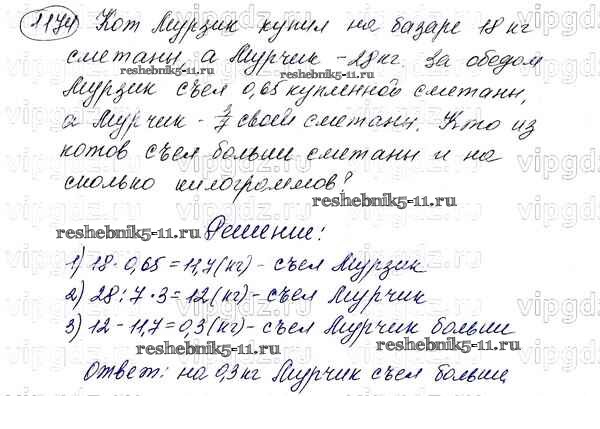 1174 Кот Мурзик купил на базаре 18 кг
сметаны, а Мурчик - 28 кг. За обедом
Мурзик съел 0,65 купленной сметаны,
а Мурчик - 3/7 своей сметаны. Кто из
котов съел больше сметаны и на
сколько килограммов?
Решение:
1) 18 · 0,65 = 11,7 (кг) - съел Мурзик
2) 28 : 7 · 3 = 12 (кг) - съел Мурчик
3) 12 - 11,7 = 0,3 (кг) - съел Мурчик больше
Ответ: на 0,3 кг Мурчик съел больше
reshebnik5-11.ru
reshebnik5-11.ru
reshebnik5-11.ru
reshebnik5-11.ru
reshebnik5-11.ru
reshebnik5-11.ru
vipgdz.ru